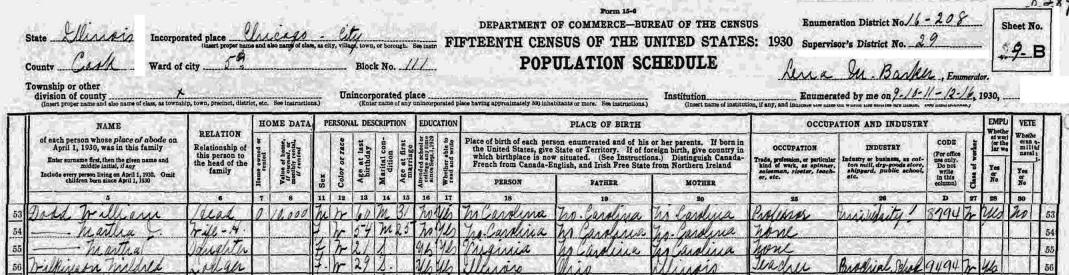 Form 15-6
DEPARTMENT OF COMMERCE—BUREAU OF THE CENSUS
FIFTEENTH CENSUS OF THE UNITED STATES: 1930
POPULATION SCHEDULE
Enumeration District No. 16-208
Supervisor's District No. 29
Sheet No.
9-B
State Illinois
Incorporated place Chicago - City
(Insert proper name and also name of class, as city, village, town, or borough. See instr
County Cook
Ward of city 5th
Block No. 111
M. Barker, Enumerator.
Township or other
division of county x
(Insert proper name and also name of class, as township, town, precinct, district, etc. See instructions.)
Unincorporated place
(Enter name of any unincorporated place having approximately 500 inhabitants or more. See instructions.)
Institution
(Insert name of institution, if any, and
Enumerated by me on 9-10-11-12-16, 1930,
NAME
of each person whose place of abode on
April 1, 1930, was in this family
Enter surname first, then the given name and
middle initial, if any
Include every person living on April 1, 1930. Omit
children born since April 1, 1930
RELATION
Relationship of
this person to
the head of the
family
HOME DATA
PERSONAL DESCRIPTION
Sex
Color or race
Age at last birthday
Marital condition
Age at first marriage
EDUCATION
Whether able to read and write
PLACE OF BIRTH
Place of birth of each person enumerated and of his or her parents. If born in
the United States, give State or Territory. If of foreign birth, give country in
which birthplace is now situated. (See Instructions.) Distinguish Canada-
French from Canada-English, and Irish Free State from Northern Ireland
PERSON
FATHER
MOTHER
OCCUPATION AND INDUSTRY
OCCUPATION
Trade, profession, or particular
kind of work, as spinner,
salesman, riveter, teach-
er, etc.
INDUSTRY
Industry or business, as cot-
ton mill, dry-goods store,
shipyard, public school,
etc.
CODE
(For office
use only.
Do not
write
in this
column)
Class of worker
EMPL
Yes
or
No
VETE
Yes
or
No
5 6 7 8 11 12 13 14 15 16 17 18 19 20 25 26 D 27 28 30
53 Dodd William Head O 10,000 M W 60 M 31 No Yes No. Carolina No. Carolina No. Carolina Professor University 8794 W Yes No 53
54 — Martha Wife-H F W 54 M 25 No Yes No. Carolina No. Carolina No. Carolina None 54
55 — Martha Daughter F W 21 S Yes Virginia No. Carolina No. Carolina None 55
56 Wilkinson Mildred Lodger F W 29 S Yes Illinois Ohio Illinois Teacher 9494 W Yes 56